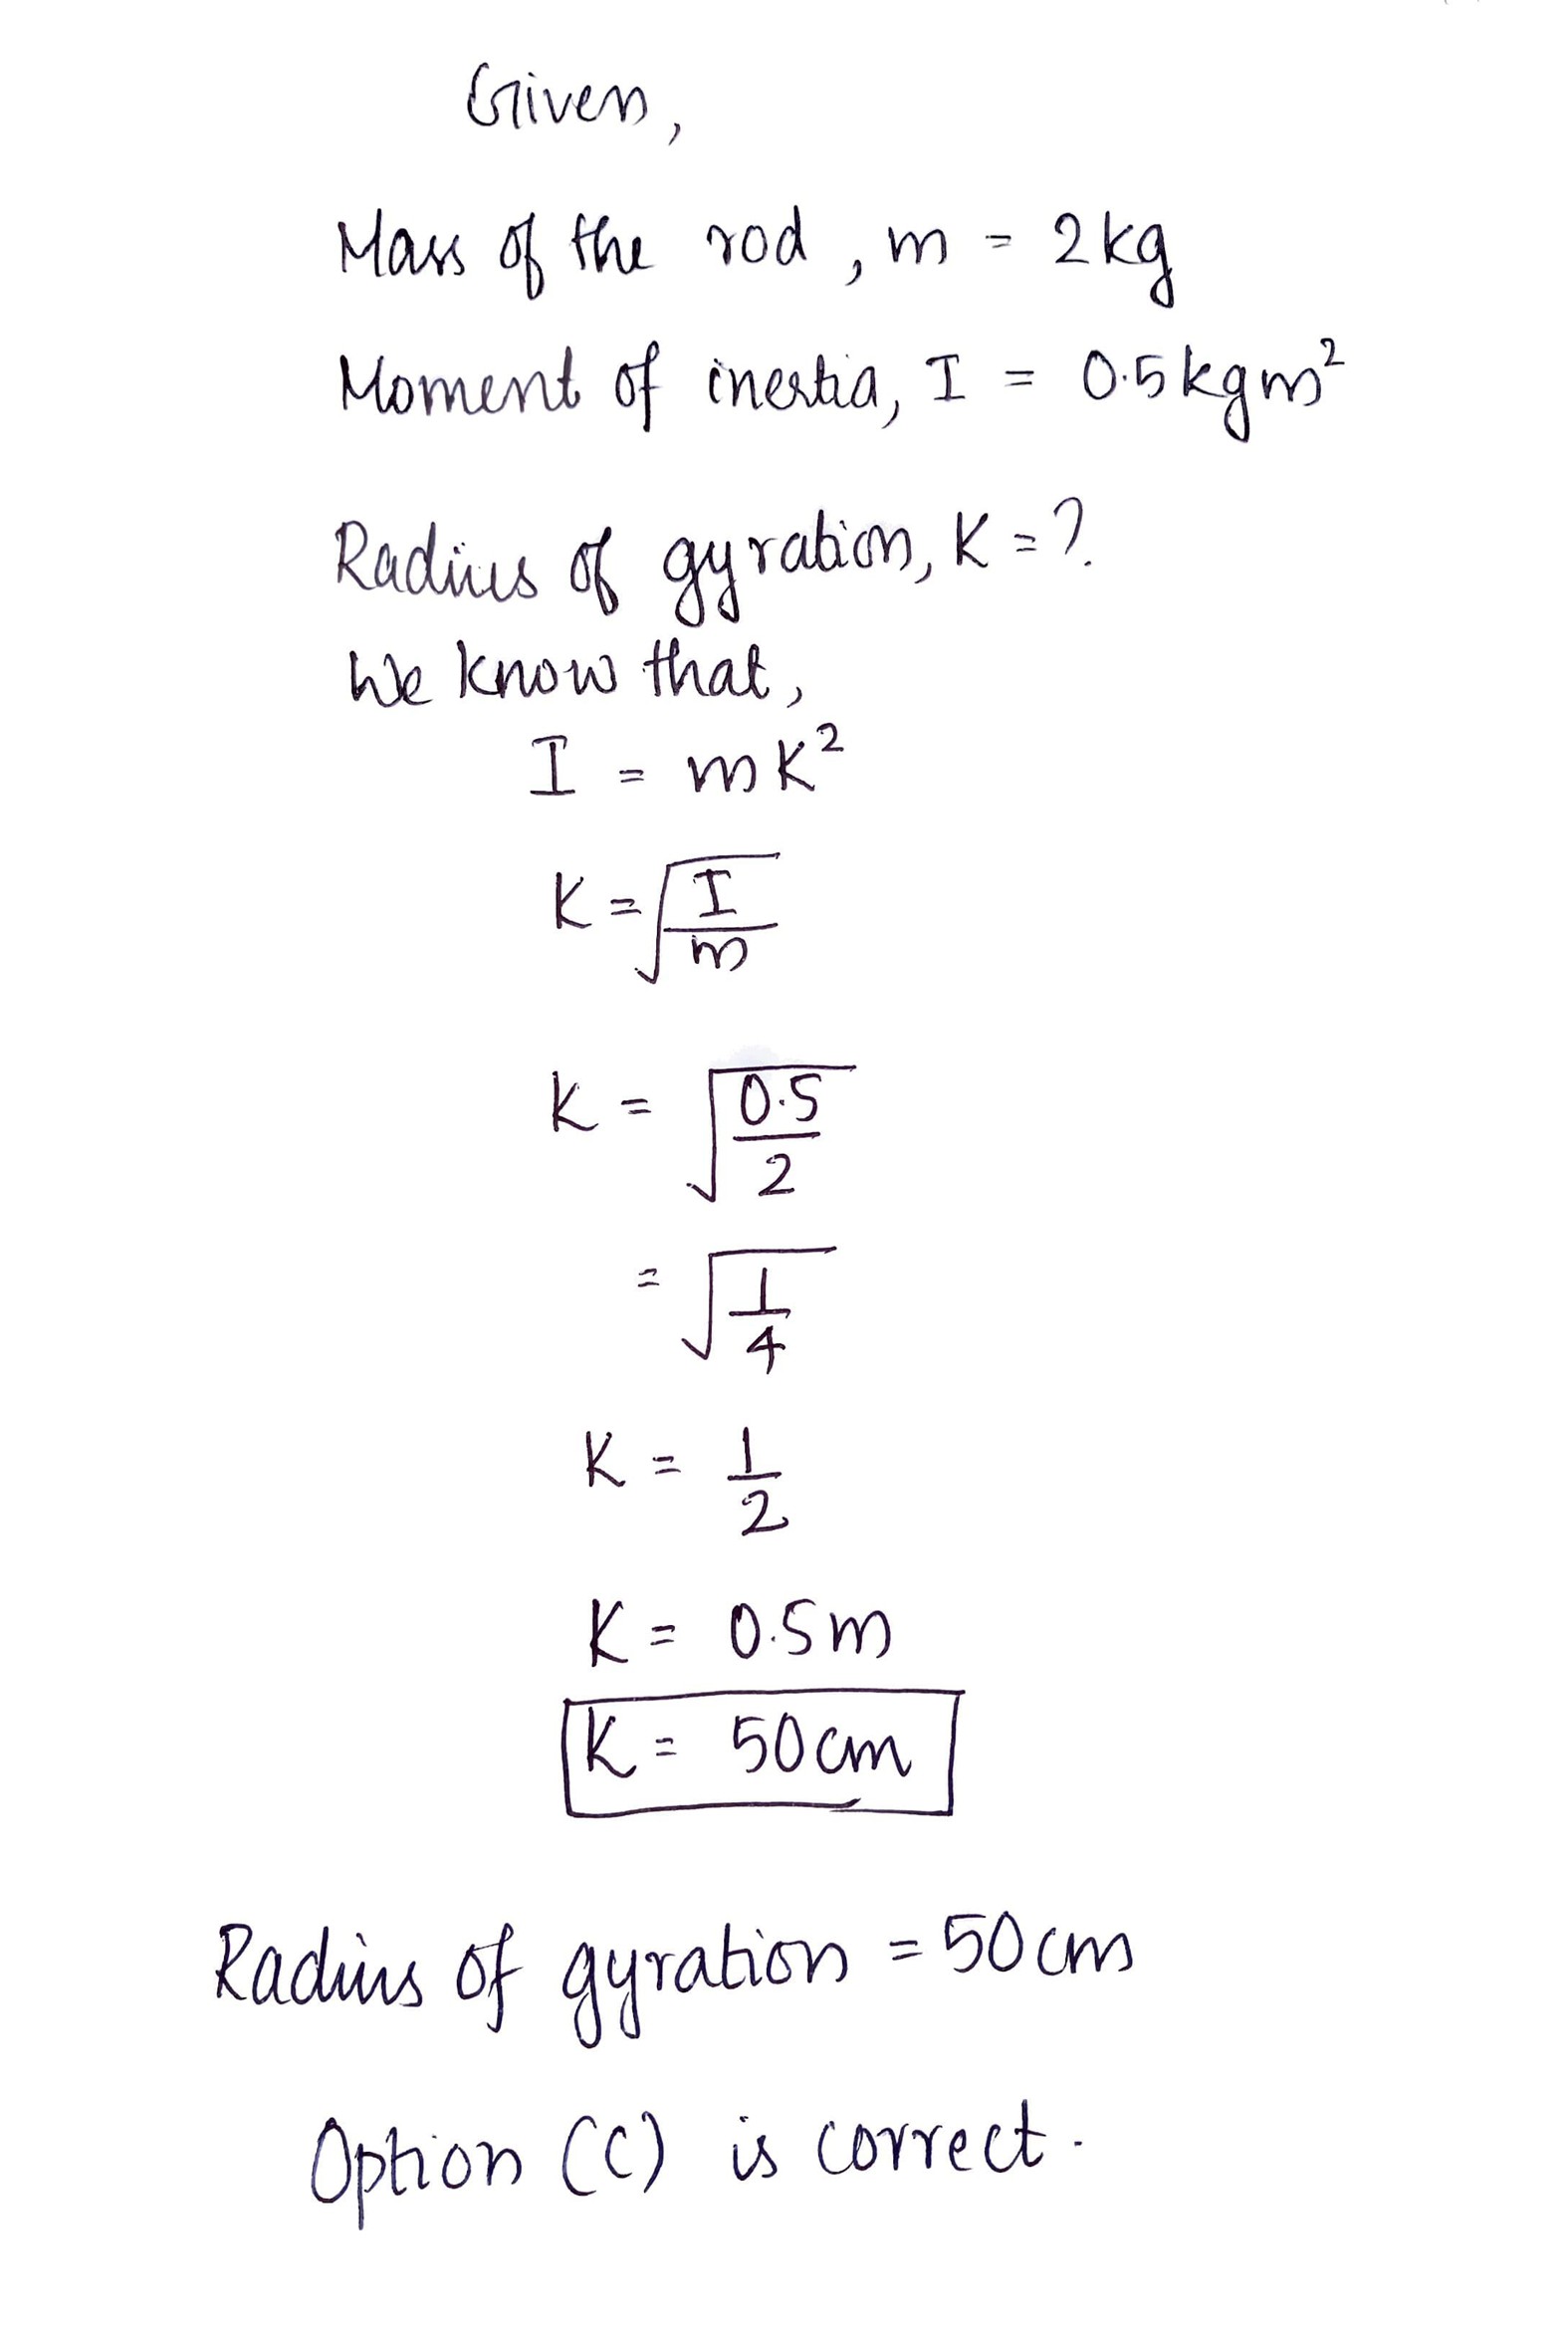 Given,
Mass of the rod, m = 2kg
Moment of inertia, I = 0.5kgm²
Radius of gyration, K = ?
We know that,
I = mK²
K = √(I/m)
K = √(0.5/2)
= √(1/4)
K = 1/2
K = 0.5m
K = 50cm
Radius of gyration = 50cm
Option (C) is correct.